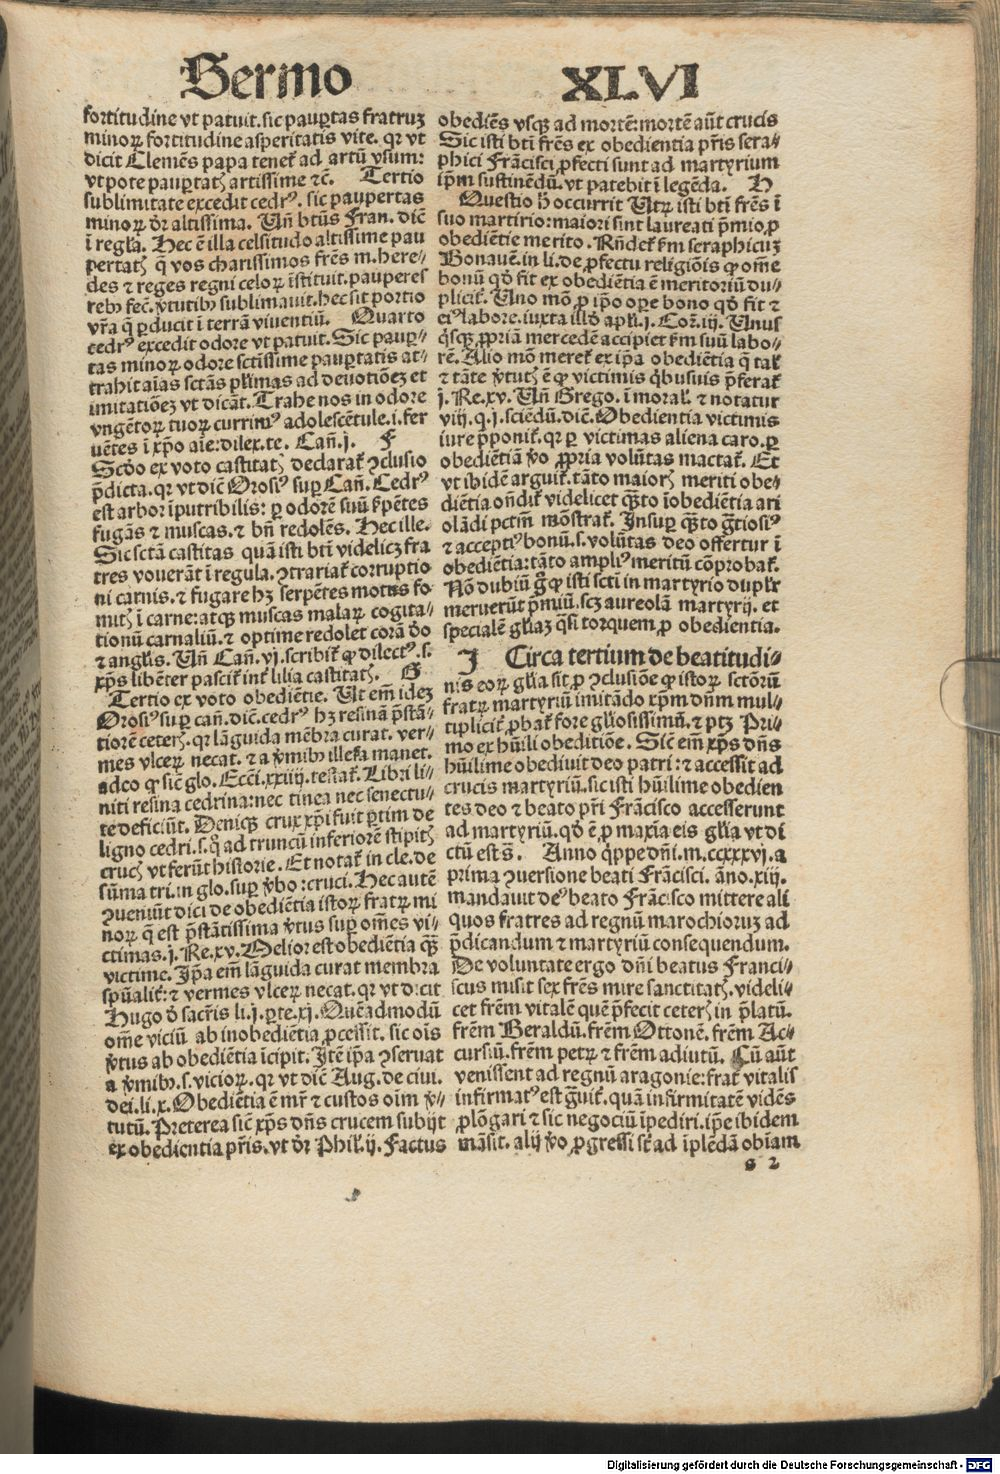 Sermo
XLVI
fortitudine vt patuit. sic pauꝑtas fratruꝫ
minoꝝ fortitudine asperitatis vite. qꝛ vt
dicit Clemēs papa teneť ad artū vsum:
vt pote pauꝑtatꝭ artissime ⁊c̄. Tertio
sublimitate excedit cedrꝰ. sic paupertas
minoꝝ dr̄ altissima. Vn̄ btūs Fran. dic̄
ī regl̓a. Hec ē illa celsitudo altissime pau
ꝑtatꝭ q̄ vos charissimos frēs m. here⸗
des ⁊ reges regni celoꝝ īstituit. pauperes
rebꝰ fec̄. v̓tutibꝰ sublimauit. hec sit portio
vr̄a q̄ ꝑducit ī terrā viuentiū. Quarto
cedrꝰ excedit odore vt patuit. Sic pauꝑ⸗
tas minoꝝ odore sctīssime pauꝑtatis at⸗
trahit aīas sctās pl̓imas ad deuotiōeꝫ et
imitatiōeꝫ vt dicāt. Trahe nos in odore
vngētoꝝ tuoꝝ currimꝰ adolescētule. i. fer
uētes ī xp̄o aīe: dilex. te. Can̄. j. F
Scd̓o ex voto castitatꝭ declarať ꝯclusio
p̄dicta. qꝛ vt dic̄ Orosiꝰ suꝑ Can̄. Cedrꝰ
est arbor īputribilis: ꝑ odorē suū s̓pētes
fugās ⁊ muscas. ⁊ bn̄ redolēs. Hec ille.
Sic sctā castitas quā isti btī videlicꝫ fra
tres vouerāt ī regula. ꝯtrariať corruptio
ni carnis. ⁊ fugare hꝫ serpētes motus fo
mitꝭ ī carne: atqꝫ muscas malaꝝ cogita⸗
tionū carnaliū. ⁊ optime redolet corā d̓o
⁊ angl̓is. Vn̄ Can̄. vj. scribiť ꝙ dilectꝰ. s.
xp̄s libēter pasciť inť lilia castitatꝭ. G
Tertio ex voto obediētie. Vt em̄ ideꝫ
Orosiꝰ suꝑ can̄. dic̄. cedrꝰ hꝫ resinā p̄stā⸗
tiorē ceterꝭ. qꝛ lāguida mēbra curat. ver⸗
mes vlceꝝ necat. ⁊ a v̓mibꝰ illesa manet.
adeo ꝙ sic̄ glo. Ecci̓. xxiiij. testať. Libri li⸗
niti resina cedrina: nec tinea nec senectu⸗
te deficiūt. Deniqꝫ crux xp̄i fuit ꝑtim de
ligno cedri. s. q̊ ad truncū inferiorē stipitꝭ
crucꝭ vt ferūt historie. Et notať in cle. de
sūma tri. in glo. suꝑ v̓bo: cruci. Hec autē
ꝯueniūt dici de obediētia istoꝝ fratꝝ mi
noꝝ q̄ est p̄stātissima v̓tus suꝑ om̄es vi⸗
ctimas. j. Re. xv. Melior est obediētia q̄ꝫ
victime. Ip̄a em̄ lāguida curat membra
spūalit̓: ⁊ vermes vlceꝝ necat. qꝛ vt dicit
Hugo d̓ sacr̄is li. j. ꝑte. xj. Quēadmodū
om̄e viciū ab inobediētia ꝓcessit. sic oīs
v̓tus ab obediētia īcipit. Itē ip̄a ꝯseruat
a v̓mibꝰ. s. vicioꝝ. qꝛ vt dic̄ Aug. de ciui.
dei. li. x. Obediētia ē mr̄ ⁊ custos oīm v̓⸗
tutū. Preterea sic̄ xp̄s dn̄s crucem subijt
ex obedientia pr̄is. vt dr̄ Phil̓. ij. Factus
obediēs vsqꝫ ad mortē: mortē aūt crucis
Sic isti btī frēs ex obedientia pr̄is sera⸗
phici Frācisci ꝓfecti sunt ad martyrium
ip̄m sustinēdū. vt patebit ī legēda. H
Questio h̓ occurrit Vtꝝ isti btī frēs ī
suo martirio: maiori sint laureati p̄mio ꝓ
obediētie merito. Rn̄deť ẜm seraphicuꝫ
Bonauē. in li. de ꝓfectu religiōis ꝙ om̄e
bonū qd̓ fit ex obediētia ē meritoriū du⸗
pliciť. Vno mō ꝓ ip̄o oꝑe bono qd̓ fit ⁊
eiꝰ labore. iuxta illd̓ apl̓i. j. Coꝝ. iij. Vnus
q̓sqꝫ ꝓpriam mercedē accipiet ẜm suū labo⸗
rē. Alio mō mereť ex ip̄a obediētia q̄ tal̓
⁊ tāte v̓tutꝭ ē ꝙ victimis q̓busuis p̄ferať
j. Re. xv. Vn̄ Grego. ī moral̓. ⁊ notatur
viij. q. j. sciēdū. dic̄. Obedientia victimis
iure p̄poniť. qꝛ ꝑ victimas aliena caro. ꝑ
obediētiā v̓o ꝓpria volūtas mactať. Et
vt ibidē arguiť. tāto maiorꝭ meriti obe⸗
diētia on̄diť videlicet q̄to īobediētia ari
olādi pctm̄ mōstrať. Insuꝑ q̄to gr̄tiosiꝰ
⁊ acceptiꝰ bonū. s. volūtas deo offertur ī
obediētia: tāto ampliꝰ meritū cōprobať.
Nō dubiū g̊ ꝙ isti sctī in martyrio dupl̓r
meruerūt p̄miū. scꝫ aureolā martyrij. et
specialē gl̓iaꝫ q̓si torquem ꝓ obedientia.
J Circa tertium de beatitudi⸗
nis eoꝝ gl̓ia sit ꝓ ꝯclusiōe ꝙ istoꝝ sctōrū
fratꝝ martyriū imitādo xp̄m dn̄m mul⸗
tipliciť ꝓbať fore gl̓iosissimū. ⁊ ptꝫ Pri⸗
mo ex hūili obeditiōe. Sic̄ em̄ xp̄s dn̄s
hūilime obediuit deo patri: ⁊ accessit ad
crucis martyriū. sic isti hūilime obedien
tes deo ⁊ beato pr̄i Frācisco accesserunt
ad martyriū. qd̓ ē ꝓ maxīa eis gl̓ia vt di
ctū est s̄. Anno q̓ppe dn̄i. m. ccxxxvj. a
prima ꝯuersione beati Frācisci. āno. xiij.
mandauit deꝰ beato Frācisco mittere ali
quos fratres ad regnū marochioruꝫ ad
p̄dicandum ⁊ martyriū consequendum.
De voluntate ergo dn̄i beatus Franci⸗
scus misit sex frēs mire sanctitatꝭ. videli⸗
cet frēm vitalē quē p̄fecit ceterꝭ in p̄latū.
frēm Beraldū. frēm Ottonē. frēm Ac⸗
cursiū. frēm petꝝ ⁊ frēm adiutū. Cū aūt
venissent ad regnū aragonie: frať vitalis
infirmatꝰ est gr̄uiť. quā infirmitatē vidēs
ꝓlōgari ⁊ sic negociū īpediri. ip̄e ibidem
māsit. alij v̓o ꝓgressi sť ad īplēdā obīam
g 2
Digitalisierung gefördert durch die Deutsche Forschungsgemeinschaft - DFG